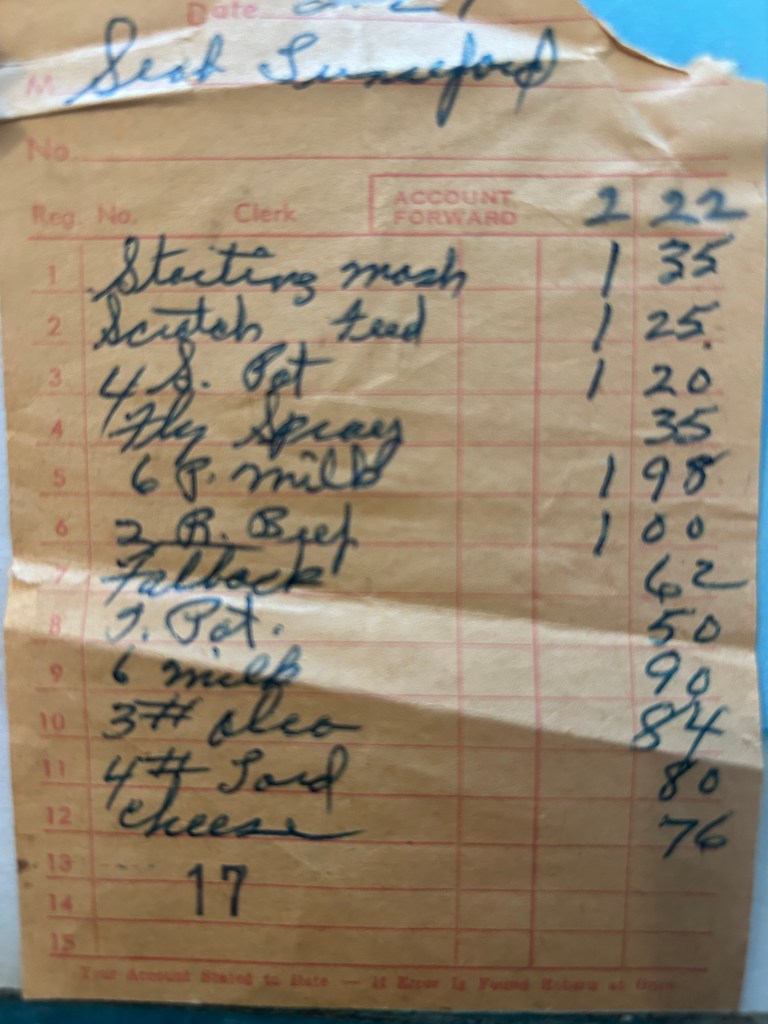 Date
M Seab Lunsford
No.
Reg. No. Clerk ACCOUNT FORWARD 2 22
1 Starting mash 1 35
2 Scratch feed 1 25
3 4 S. Pot 1 20
4 Fly Spray 35
5 6 P. milk 1 98
6 2 R. Beef 1 00
7 Fatback 62
8 I. Pot. 50
9 6 milk 90
10 3# oleo 84
11 4# Lard 80
12 Cheese 76
13
17
14
15
Your Account Stated to Date — If Error Is Found Return at Once